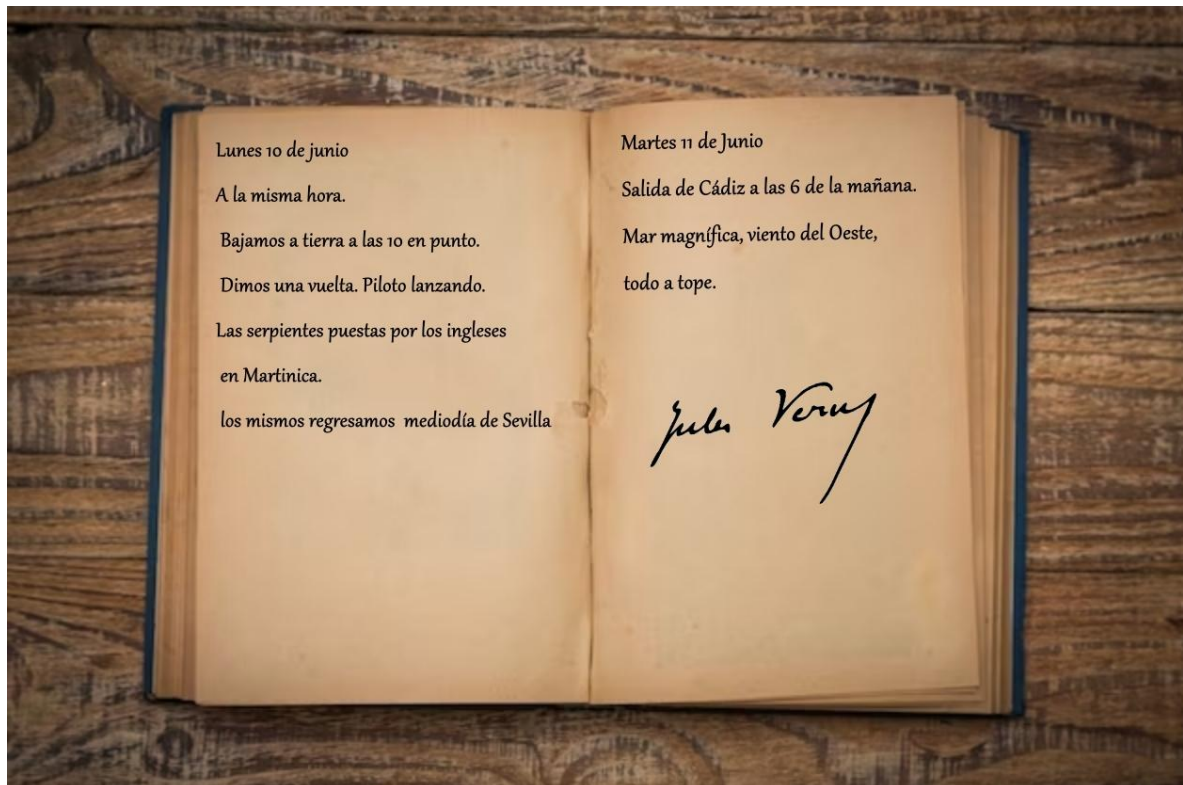 Lunes 10 de junio
A la misma hora.
Bajamos a tierra a las 10 en punto.
Dimos una vuelta. Piloto lanzando.
Las serpientes puestas por los ingleses
en Martinica.
los mismos regresamos mediodía de Sevilla
Martes 11 de Junio
Salida de Cádiz a las 6 de la mañana.
Mar magnífica, viento del Oeste,
todo a tope.
Jules Verne